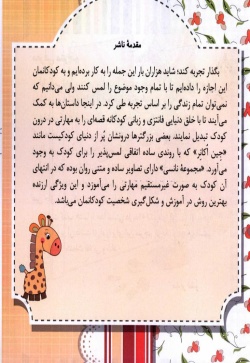 مقدمهٔ ناشر
بگذار تجربه کند؛ شاید هزاران بار این جمله را به کار برده‌ایم و به کودکانمان
این اجازه را داده‌ایم تا با تمام وجود موضوع را لمس کنند ولی می‌دانیم که
نمی‌توان تمام زندگی را بر اساس تجربه طی کرد. در اینجا داستان‌ها به کمک
می‌آیند تا با خلق دنیایی فانتزی و زبانی کودکانه قصه‌ای را به مهارتی در درون
کودک تبدیل نمایند. بعضی بزرگترها درونشان پُر از دنیای کودکیست مانند
«جین اُکانر» که با روندی ساده اتفاقی لمس‌پذیر را برای کودک به وجود
می‌آورد. «مجموعهٔ نانسی» دارای تصاویر ساده و متنی روان بوده که در انتهای
آن کودک به صورت غیرمستقیم مَهارتی را می‌آموزد و این ویژگی ارزنده
بهترین روش در آموزش و شکل‌گیری شخصیت کودکانمان می‌باشد.